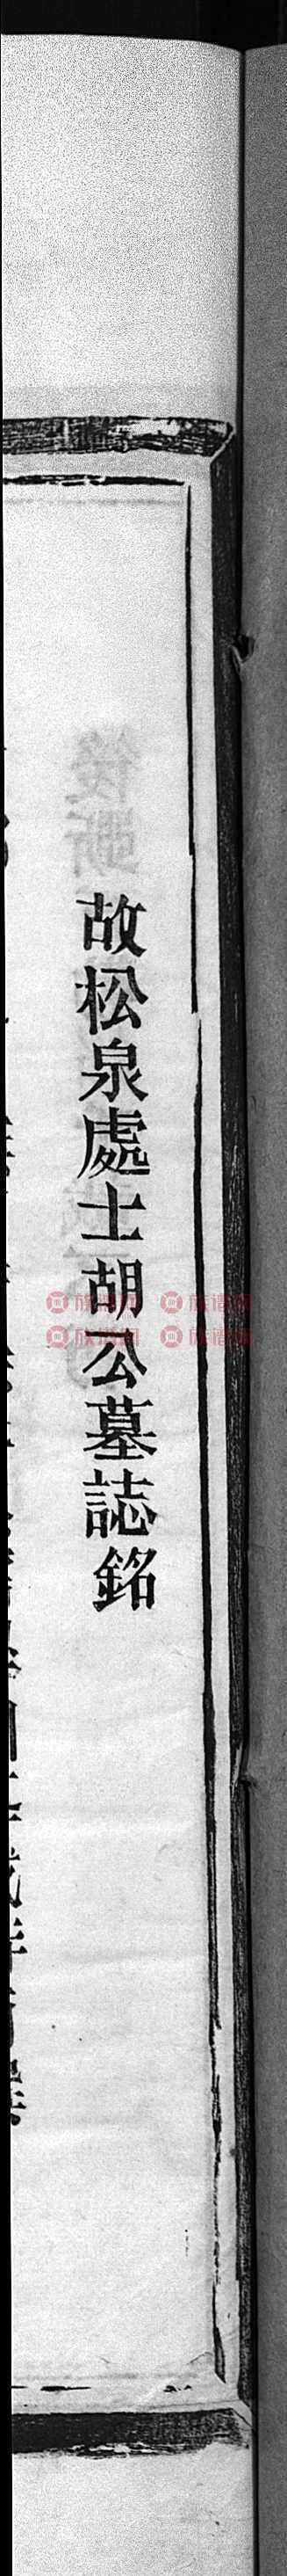 故松泉處士胡公墓誌銘